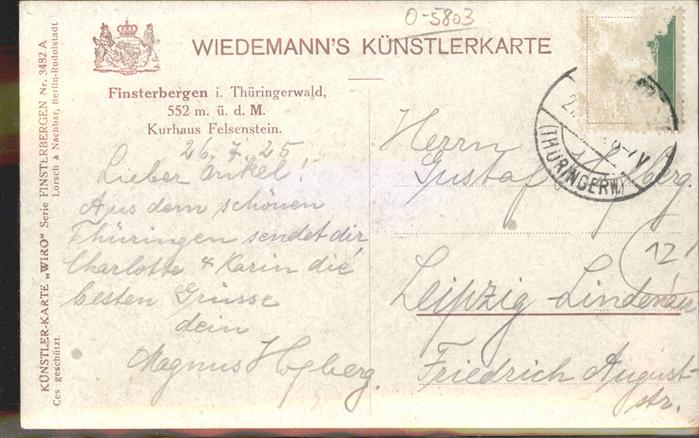 O-5803
WIEDEMANN'S KÜNSTLERKARTE
Finsterbergen i. Thüringerwald,
552 m. ü. d. M.
Kurhaus Felsenstein.
26.7.25
Lieber onkel!
Aus dem schönen
Thüringen sendet dir
Charlotte & Karin die
besten Grüsse
dein
Magnus Hogberg.
Herrn
Gustaf
Leipzig-Lindenau
Friedrich August-
str.
12
(THÜRINGERW)
KÜNSTLER-KARTE „WIRO“ Serie FINSTERBERGEN Nr. 3482 A
Ges geschützt. Lorsch & Nachbar, Berlin-Rudolstadt